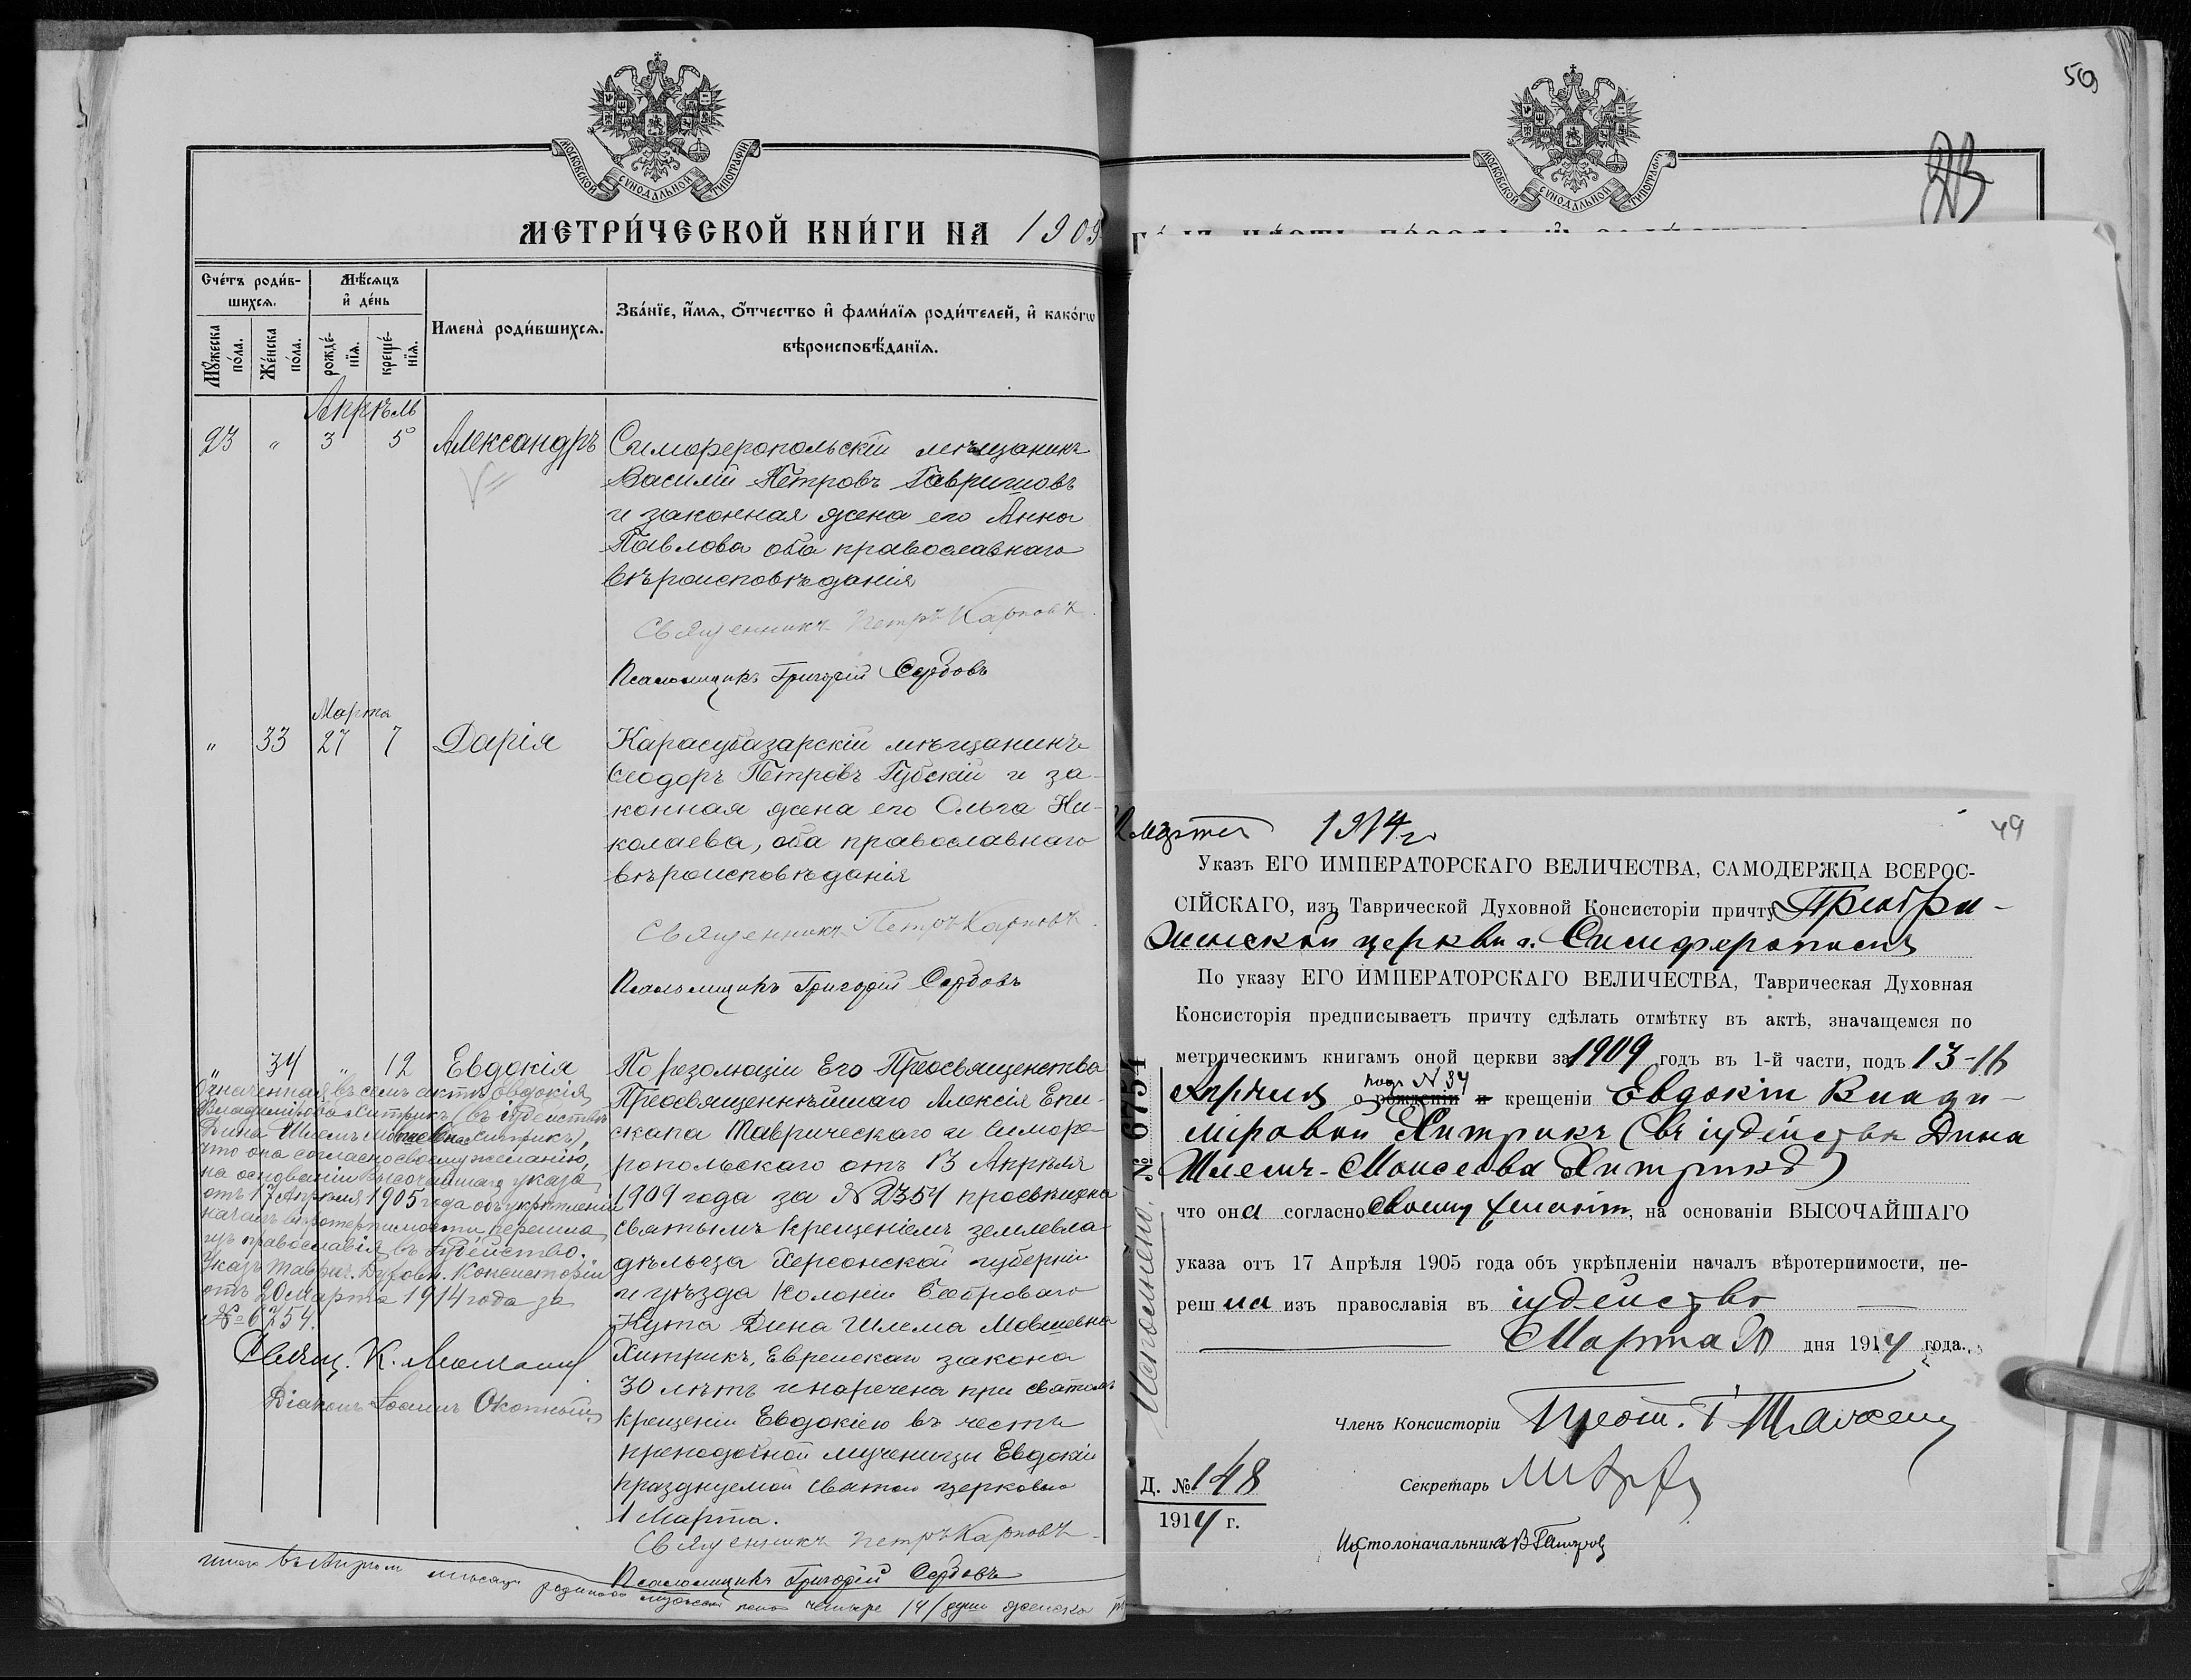 МОСКОВСКОЙ СѴНОДАЛЬНОЙ ТИПОГРАФІИ
МЕТРИ́ЧЕСКОЙ КНИ́ГИ НА 1909
Сче́тъ роди́в-
шихсѧ.
Мѣ́сѧцъ
и҆ де́нь
Мꙋ́жеска
по́ла.
Же́нска
по́ла.
рожде́-
нїѧ.
креще́-
нїѧ.
Имена̀ роди́вшихсѧ.
Зва́нїе, и҆́мѧ, ѻ҆́тчество и҆ фами́лїѧ роди́телей, и҆ како́гѡ
вѣроисповѣ́данїѧ.
Апрѣль
23 " 3 5 Александръ
Симферопольскій мѣщанинъ
Василій Петровъ Гавришовъ
и законная жена его Анна
Павлова оба православнаго
вѣроисповѣданія
Священникъ Петръ Карповъ.
Псаломщикъ Григорій Сербовъ
Марта
" 33 27 7 Дарія
Карасубазарскій мѣщанинъ
Ѳеодоръ Петровъ Губскій и за-
конная жена его Ольга Ни-
колаева, оба православнаго
вѣроисповѣданія
Священникъ Петръ Карповъ.
Псаломщикъ Григорій Сербовъ
" 34 " 12 Евдокія
По резолюціи Его Преосвященства
Преосвященнѣйшаго Алексія Епи-
скопа Таврическаго и Симфе-
ропольскаго отъ 13 Апрѣля
1909 года за № 2354 просвѣщена
святымъ крещеніемъ землевла-
дѣльца Херсонской губерніи
и уѣзда Колоніи Боброваго
Кута Дина Шлема Мовшевна
Хитрикъ, Еврейскаго закона
30 лѣтъ и наречена при святомъ
крещеніи Евдокіею въ честь
преподобной мученицы Евдокіи
празднуемой святою церковью
1 Марта.
Священникъ Петръ Карповъ
Псаломщикъ Григорій Сербовъ
Означенная въ семъ актѣ Евдокія
Владимірова Хитрикъ (въ іудействѣ
Дина Шлемъ Мовшевна Хитрикъ),
что она согласно своему желанію,
на основаніи Высочайшаго указа
отъ 17 Апрѣля 1905 года объ укрѣпленіи
началъ вѣротерпимости, перешла
изъ православія въ іудейство.
Указъ Таврич. Духовн. Консисторіи
отъ 20 Марта 1914 года за
№ 6754.
Свящ. К.
Діаконъ Іоаннъ Окопный
Итого въ Апрѣлѣ мѣсяцѣ родилось мужеска пола четыре /4/ души женска
МОСКОВСКОЙ СѴНОДАЛЬНОЙ ТИПОГРАФІИ
50
23
49
марта 1914 г.
Указъ ЕГО ИМПЕРАТОРСКАГО ВЕЛИЧЕСТВА, САМОДЕРЖЦА ВСЕРОС-
СІЙСКАГО, изъ Таврической Духовной Консисторіи причту Преобра-
женской церкви г. Симферополя
По указу ЕГО ИМПЕРАТОРСКАГО ВЕЛИЧЕСТВА, Таврическая Духовная
Консисторія предписываетъ причту сдѣлать отмѣтку въ актѣ, значащемся по
метрическимъ книгамъ оной церкви за 1909 годъ въ 1-й части, подъ 13-16
подъ № 34
Апрѣля о рожденіи и крещеніи Евдокіи Влади-
міровой Хитрикъ (въ іудействѣ Дина
Шлемъ-Моисеева Хитрикъ)
что она согласно своему желанію, на основаніи ВЫСОЧАЙШАГО
указа отъ 17 Апрѣля 1905 года объ укрѣпленіи началъ вѣротерпимости, пе-
решла изъ православія въ іудейство
Марта 20 дня 1914 года.
Членъ Консисторіи Прот. Г.
Секретарь
И. д. Столоначальника В.
№ 6754
Исполнено.
Д. № 148
1914 г.